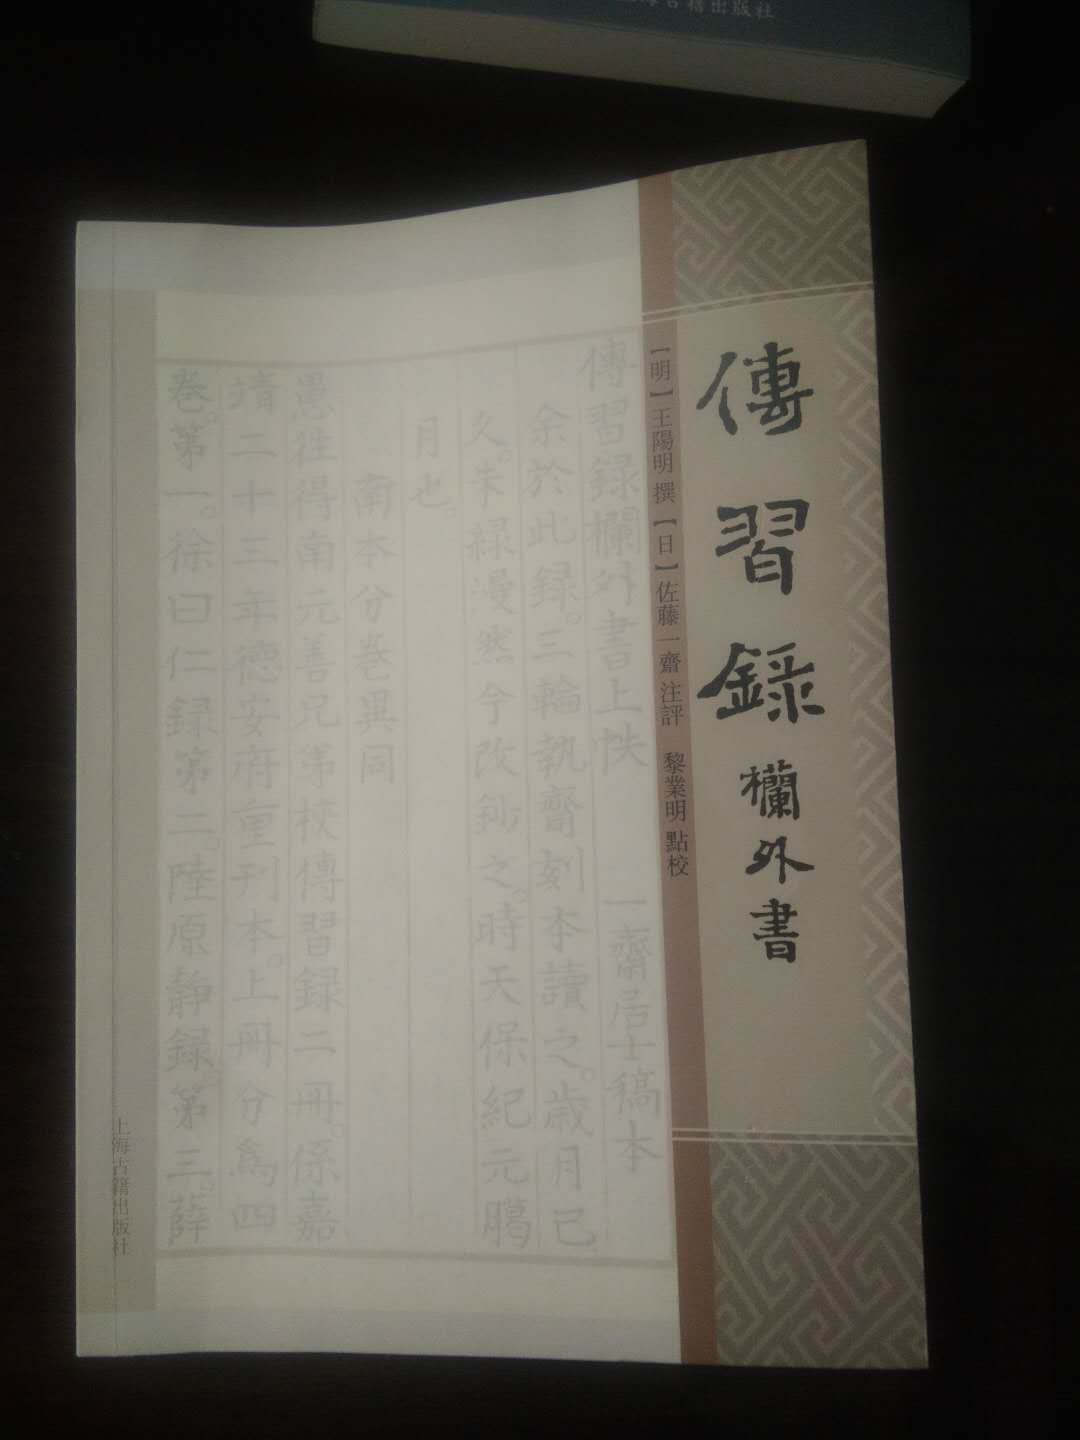 古籍出版社
傳習錄欄外書
【明】王陽明 撰 【日】佐藤一齋 注評 黎業明 點校
傳習録欄外書上帙 一齋居士稿本
余於此録。三輪執齋刻本讀之。歲月已
久。朱緑漫然今改鈔之。時天保紀元臈
月也。
南本分卷異同
愚往得南元善兄弟校傳習録二冊。係嘉
靖二十三年德安府重刊本。上冊分為四
卷。第一。徐曰仁録第二。陸原静録。第三。薛
上海古籍出版社